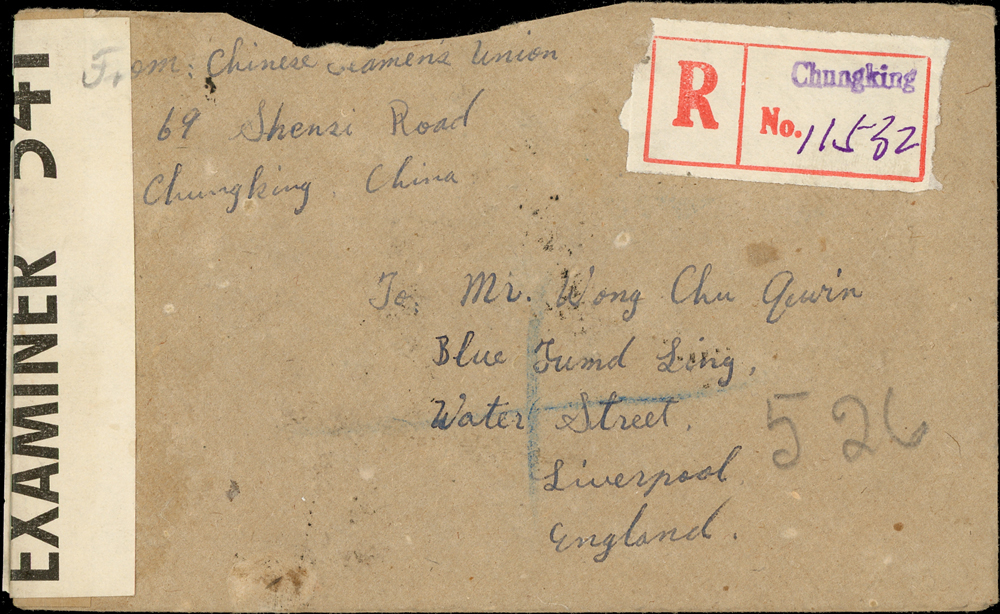 From: Chinese Seamen's Union
69 Shensi Road
Chungking, China
R
Chungking
No. 11532
To Mr. Wong Chu Quwin
Blue Fumd Ling,
Water Street,
Liverpool
England.
526
EXAMINER 541